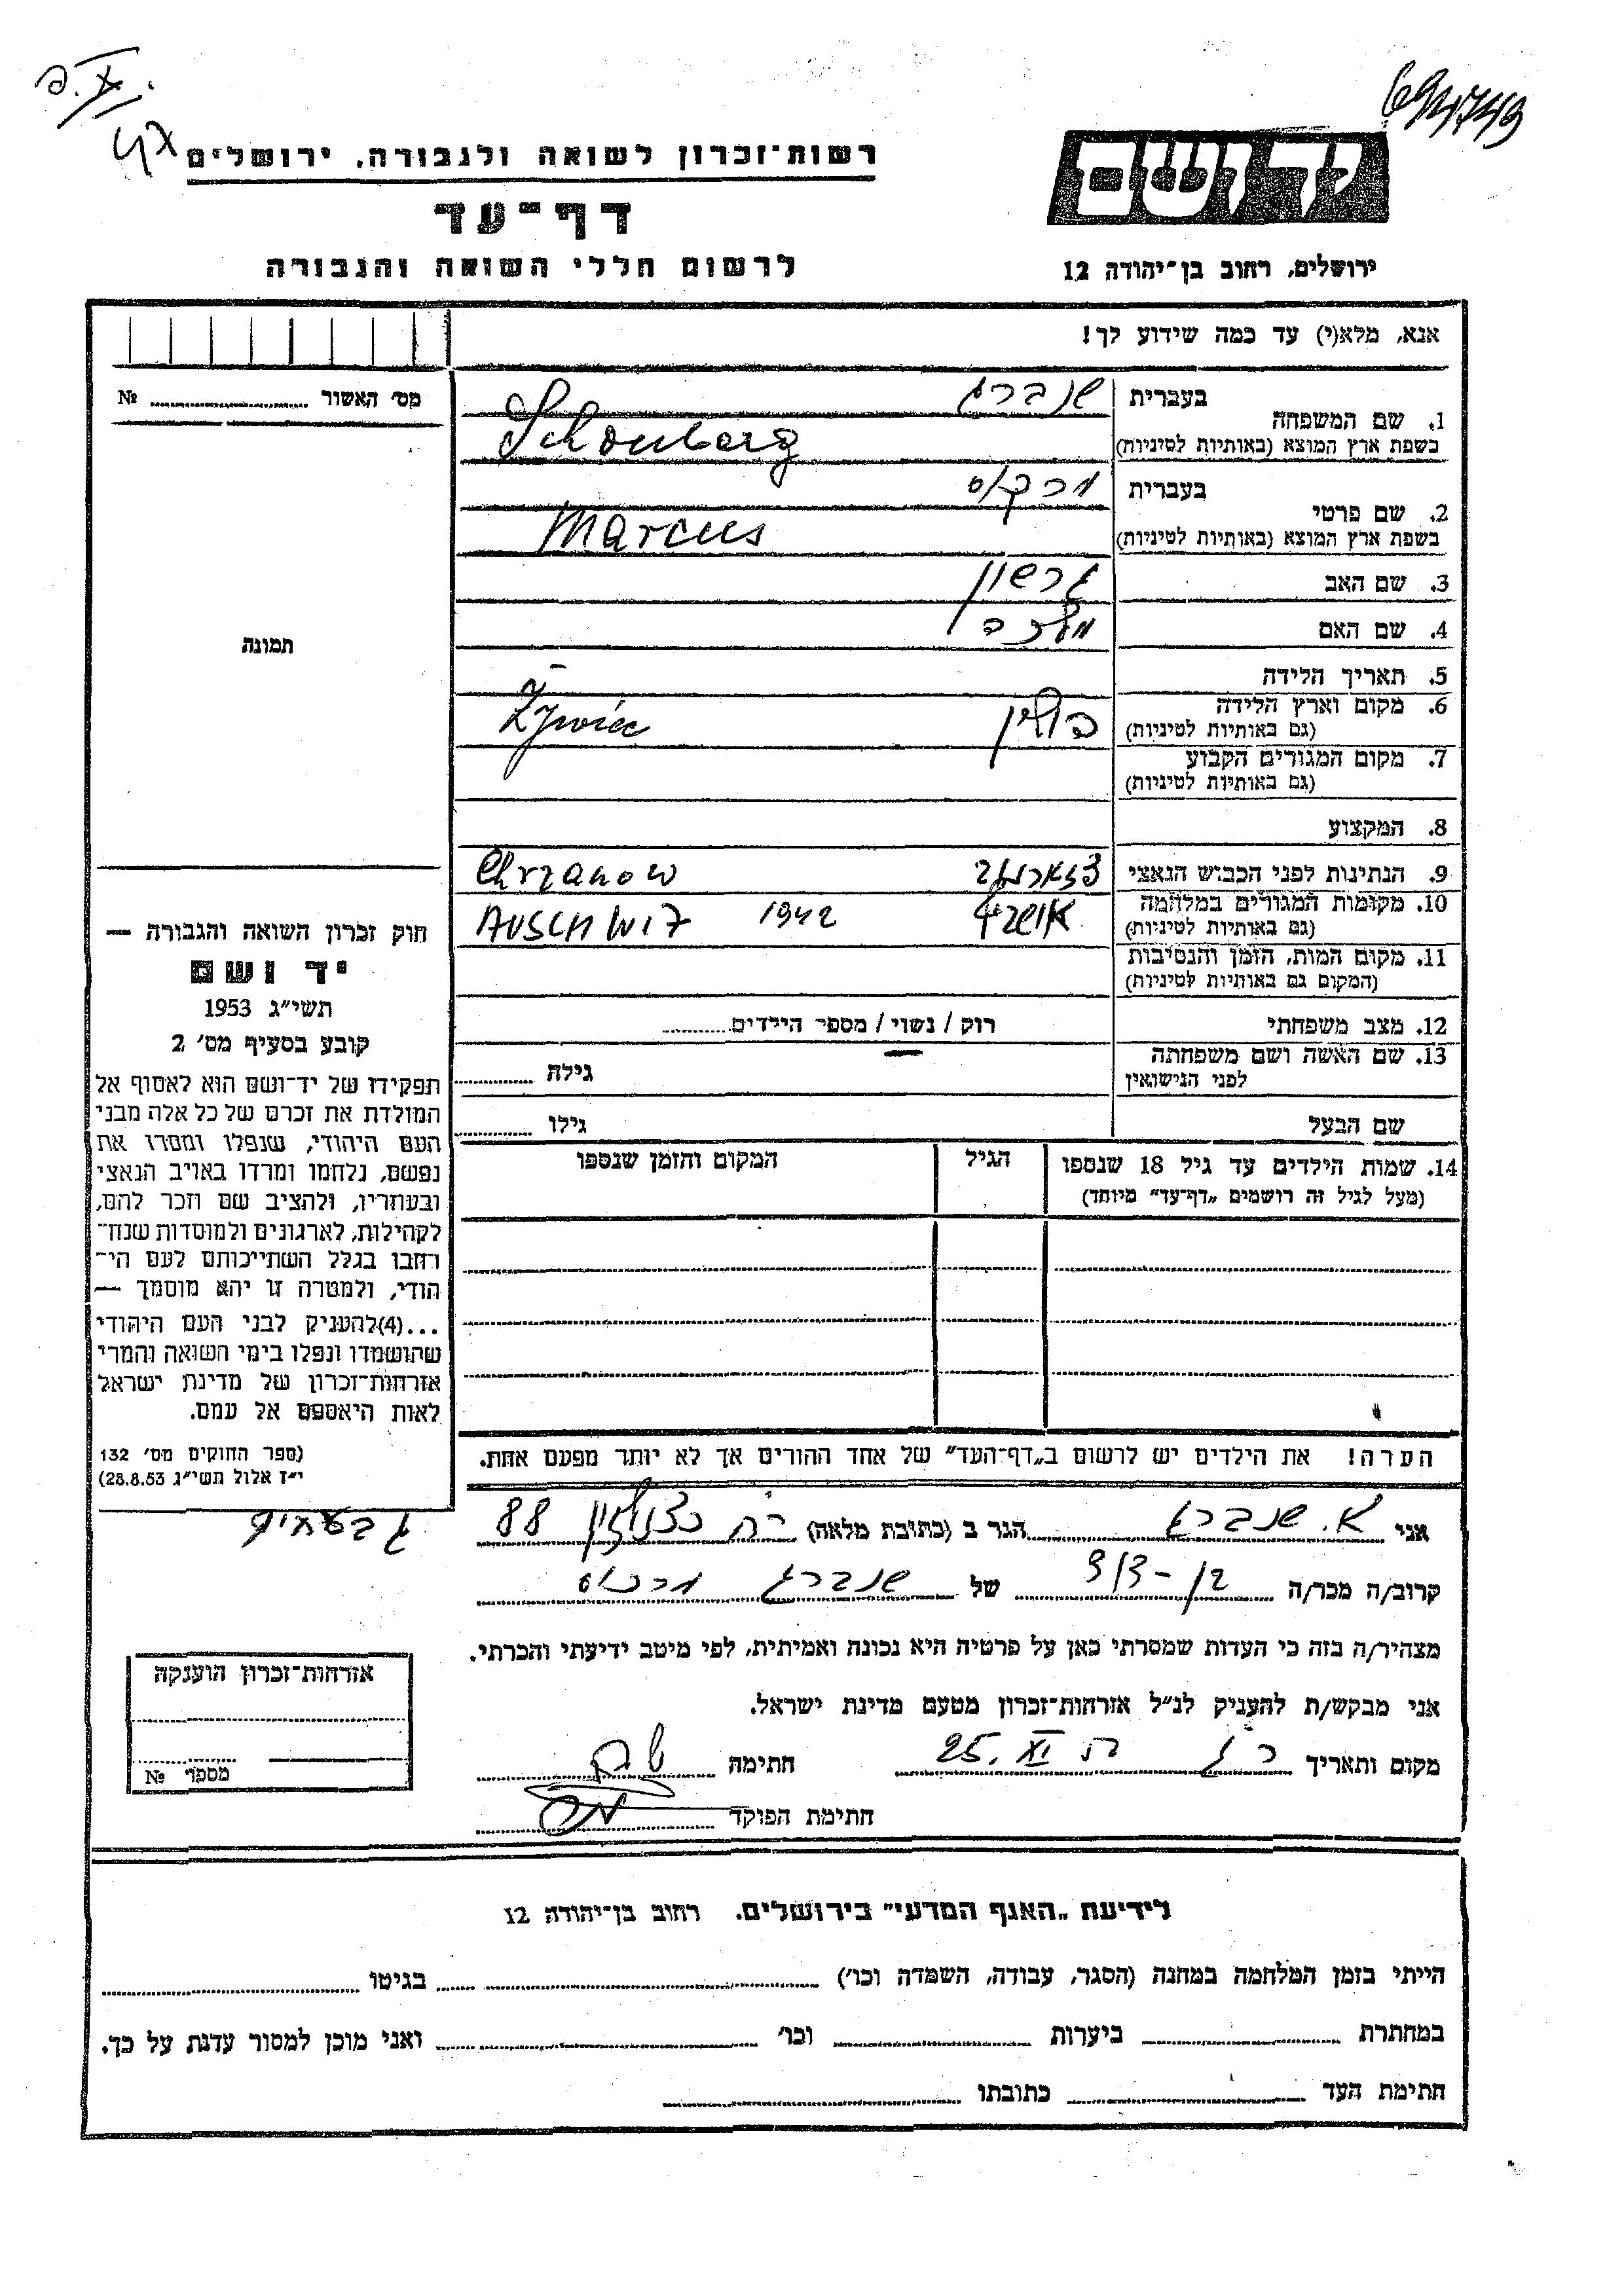 694749
רשות־זכרון לשואה ולגבורה, ירושלים
יד ושם
דף־עד
לרשום חללי השואה והגבורה
ירושלים, רחוב בן־יהודה 12
אנא, מלא(י) עד כמה שידוע לך!
מס׳ האשור № 
1. שם המשפחה
בעברית שנברג
בשפת ארץ המוצא (באותיות לטיניות) Schonberg
2. שם פרטי
בעברית מרקוס
בשפת ארץ המוצא (באותיות לטיניות) Marcus
3. שם האב גרשון
4. שם האם מלכה
תמונה
5. תאריך הלידה —
6. מקום וארץ הלידה
(גם באותיות לטיניות) פולין Żywiec
7. מקום המגורים הקבוע
(גם באותיות לטיניות)
8. המקצוע
9. הנתינות לפני הכבוש הנאצי Chrzanow
10. מקומות המגורים במלחמה
(גם באותיות לטיניות) 1942 AUSCHWITZ
11. מקום המות, הזמן והנסיבות
(המקום גם באותיות לטיניות)
12. מצב משפחתי רוק / נשוי / מספר הילדים
13. שם האשה ושם משפחתה
לפני הנישואין גילה
שם הבעל גילו
14. שמות הילדים עד גיל 18 שנספו הגיל המקום והזמן שנספו
(מעל לגיל זה רושמים „דף־עד” מיוחד)
הערה! את הילדים יש לרשום ב„דף־העד” של אחד ההורים אך לא יותר מפעם אחת.
חוק זכרון השואה והגבורה —
יד ושם
תשי״ג 1953
קובע בסעיף מס׳ 2
תפקידו של יד־ושם הוא לאסוף אל
המולדת את זכרם של כל אלה מבני
העם היהודי, שנפלו ומסרו את
נפשם, נלחמו ומרדו באויב הנאצי
ובעוזריו, ולהציב שם וזכר להם,
לקהילות, לארגונים ולמוסדות שנח־
רחבו בגלל השתייכותם לעם הי־
הודי, ולמטרה זו יהא מוסמך —
...(4)להעניק לבני העם היהודי
שהושמדו ונפלו בימי השואה והמרי
אזרחות־זכרון של מדינת ישראל
לאות היאספם אל עמם.
(ספר החוקים מס׳ 132
י״ז אלול תשי״ג 28.8.53)
אני א. שנברג הגר ב (כתובת מלאה) רח׳ כצנלסון 88
גבעתיים
קרוב/ה מכר/ה בן-דוד של שנברג מרכוס
מצהיר/ה בזה כי העדות שמסרתי כאן על פרטיה היא נכונה ואמיתית, לפי מיטב ידיעתי והכרתי.
אני מבקש/ת להעניק לנ״ל אזרחות־זכרון מטעם מדינת ישראל.
מקום ותאריך 25. XI חתימה
חתימת הפוקד
אזרחות־זכרון הוענקה
מספר №
לידיעת „האגף המדעי” בירושלים. רחוב בן־יהודה 12
הייתי בזמן המלחמה במחנה (הסגר, עבודה, השמדה וכו׳) בגיטו
במחתרת ביערות וכו׳ ואני מוכן למסור עדות על כך.
חתימת העד כתובתו